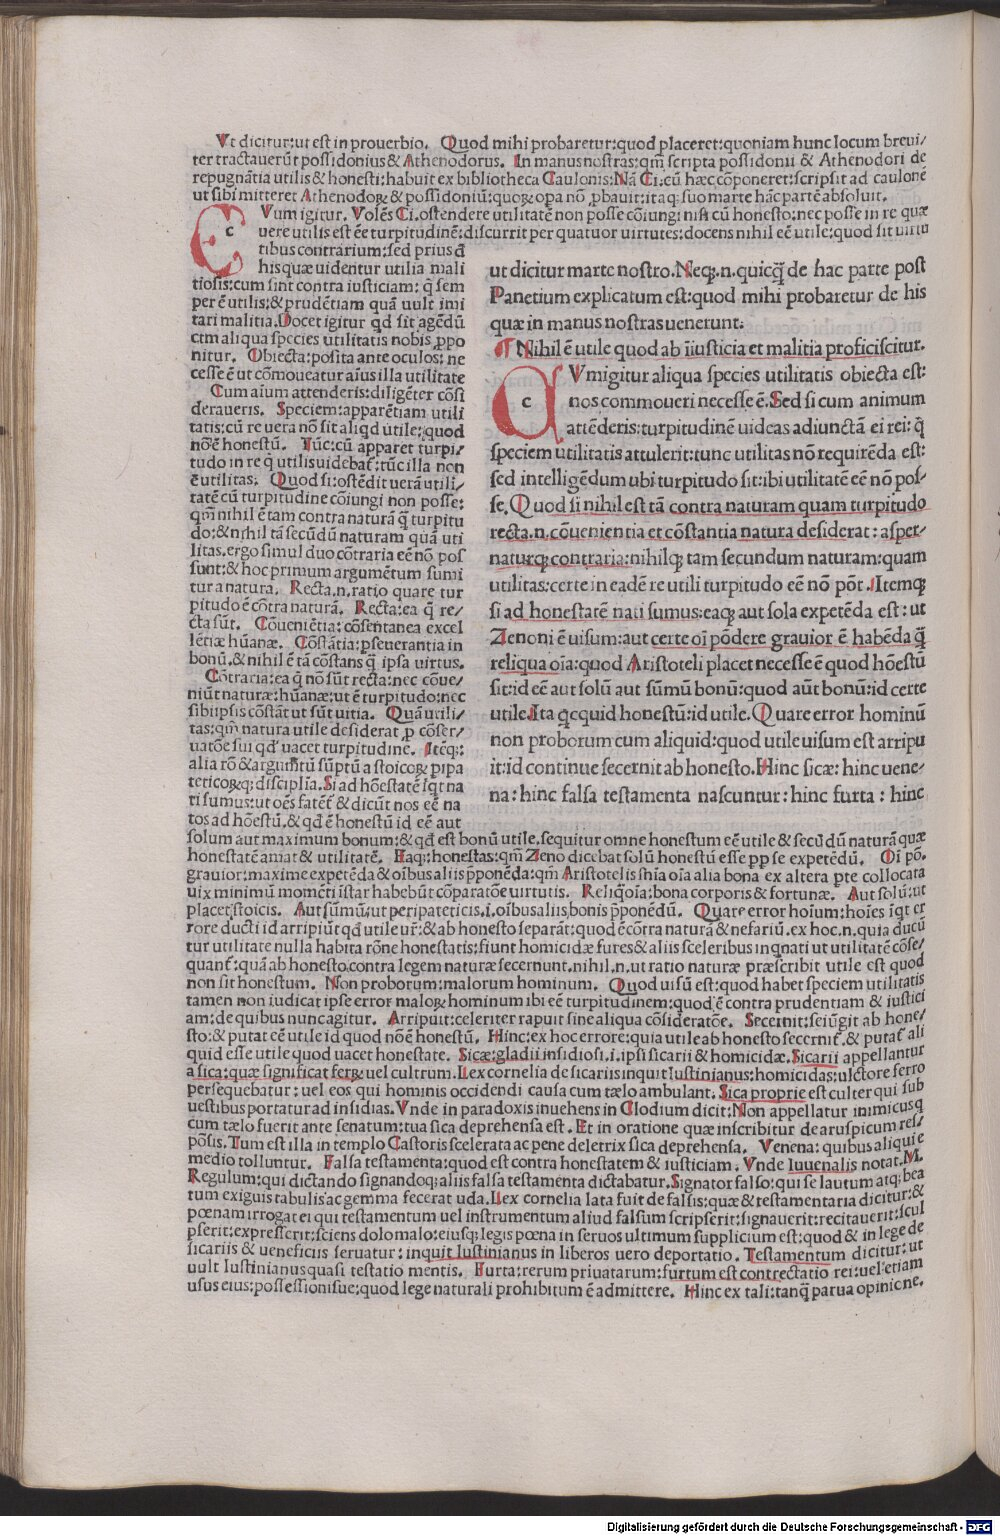 Vt dicitur:ut est in prouerbio. Quod mihi probaretur:quod placeret:quoniam hunc locum breui/
ter tractauerūt possidonius & Athenodorus. In manus nostras:qm̄ scripta possidonii & Athenodori de
repugnātia utilis & honesti:habuit ex bibliotheca Caulonis:Nā Ci.cū hæc cōponeret:scripsit ad caulonē
ut sibi mitteret Athenodoꝝ & possidoniū:quoꝝ opa nō ꝓbauit:itaq; suo marte hāc partē absoluit.
CVum igitur. Volēs Ci.ostendere utilitatē non posse cōiungi nisi cū honesto:nec posse in re quæ
uere utilis est eē turpitudinē:discurrit per quatuor uirtutes:docens nihil eē utile:quod sit uirtu
tibus contrarium:sed prius d̄
his quæ uidentur utilia mali
tiosis:cum sint contra iusticiam: q̄ sem
per ē utilis:& prudētiam quā uult imi
tari malitia.Docet igitur qd sit agēdū
cum aliqua species utilitatis nobis ꝓpo
nitur. Obiecta:posita ante oculos: ne
cesse ē ut cōmoueatur aīus illa utilitate
Cum aīum attenderis:diligēter cōsi
deraueris. Speciem:apparētiam utili
tatis:cū re uera nō sit aliqd utile:quod
nō ē honestū. Tūc:cū apparet turpi/
tudo in re q̄ utilis uidebat̄:tūc illa non
ē utilitas. Quod si:ostēdit uerā utili/
tatē cū turpitudine cōiungi non posse:
qm̄ nihil ē tam contra naturā q̄ turpitu
do:& nihil tā secūdū naturam quā uti
litas.ergo simul duo cōtraria eē nō pos
sunt:& hoc primum argumētum sumi
tur a natura. Recta.n.ratio quare tur
pitudo ē cōtra naturā. Recta:ea q̄ re/
cta sūt. Cōueniētia: cōsentanea excel
lētiæ hūanæ. Cōstātia:pseuerantia in
bonū.& nihil ē tā cōstans q̄ ipsa uirtus.
Cōtraria:ea q̄ nō sūt recta:nec cōue/
niūt naturæ:hūanæ:ut ē turpitudo:nec
sibiipsis cōstāt ut sūt uitia. Quā utili/
tas:qm̄ natura utile desiderat ꝓ cōser/
uatōe sui qd' uacet turpitudine. Itēq;:
alia rō & argum̄tū sūptū a stoicoꝝ & pipa
teticoꝝ q; discipl̄ia.Si ad hōestatē īqt na
ti sumus:ut oēs fatēt̄ & dicūt nos eē na
tos ad hōestū.& qd' ē honestū id eē aut
ut dicitur marte nostro.Neq;.n.quicq̄ de hac parte post
Panetium explicatum est:quod mihi probaretur de his
quæ in manus nostras uenerunt.
¶ Nihil ē utile quod ab iīusticia et malitia proficiscitur.
CVm igitur aliqua species utilitatis obiecta est:
nos commoueri necesse ē.Sed si cum animum
attēderis:turpitudinē uideas adiunctā ei rei: q̄
speciem utilitatis attulerit:tunc utilitas nō requirēda est:
sed intelligēdum ubi turpitudo sit:ibi utilitatē eē nō pos/
se.Quod si nihil est tā contra naturam quam turpitudo
recta.n.cōuenientia et cōstantia natura desiderat : asper/
naturq; contraria:nihilq; tam secundum naturam:quam
utilitas:certe in eadē re utili turpitudo eē nō pōt.Itemq;
si ad honestatē nati sumus:eaq; aut sola expetēda est: ut
Zenoni ē uisum:aut certe oī pōdere grauior ē habēda q̄
reliqua oīa:quod Aristoteli placet necesse ē quod hōestū
sit:id eē aut solū aut sūmū bonū:quod aūt bonū:id certe
utile.Ita q̄cquid honestū:id utile.Quare error hominū
non proborum cum aliquid:quod utile uisum est arripu
it:id continue secernit ab honesto.Hinc sicæ: hinc uene/
na: hinc falsa testamenta nascuntur: hinc furta : hinc
solum aut maximum bonum:& qd' est bonū utile.sequitur omne honestum eē utile & secūdū naturā quæ
honestatē amat & utilitatē. Eaq;:honestas:qm̄ Zeno dicebat solū honestū esse ꝓp se expetēdū. Oī pō.
grauior:maxime expetēda & oībus aliis p̄ponēda:qm̄ Aristotelis s̄nia oīa alia bona ex altera pte collocata
uix minimū momēti īstar habebūt cōparatōe uirtutis. Reliq̄ oīa:bona corporis & fortunæ. Aut solū:ut
placet stoicis. Aut sūmū:ut peripateticis.i.oībus aliis bonis p̄ponēdū. Quare error hoīum:hoīes īqt er
rore ducti id arripiūt qd' utile ur̄:& ab honesto separāt:quod ē cōtra naturā & nefariū.ex hoc.n.quia ducū
tur utilitate nulla habita rōne honestatis:fiunt homicidæ fures & aliis sceleribus inqnati ut utilitatē cōse/
quant̄:quā ab honesto contra legem naturæ secernunt.nihil.n.ut ratio naturæ præscribit utile est quod
non sit honestum. Non proborum:malorum hominum. Quod uisū est:quod habet speciem utilitatis
tamen non iudicat ipse error maloꝝ hominum ibi eē turpitudinem:quod ē contra prudentiam & iustici
am:de quibus nunc agitur. Arripuit:celeriter rapuit sine aliqua cōsideratōe. Secernit:seiūgit ab hone/
sto:& putat eē utile id quod nō ē honestū. Hinc:ex hoc errore:quia utile ab honesto secernit̄.& putat̄ ali
quid esse utile quod uacet honestate. Sicæ:gladii insidiosi.i.ipsi sicarii & homicidæ.Sicarii appellantur
a sica:quæ significat ferꝝ uel cultrum.Lex cornelia de sicariis inquit Iustinianus:homicidas:ulctore ferro
persequebatur: uel eos qui hominis occidendi causa cum tælo ambulant.Sica proprie est culter qui sub
uestibus portatur ad insidias.Vnde in paradoxis inuehens in Clodium dicit:Non appellatur inimicus q
cum tælo fuerit ante senatum:tua sica deprehensa est. Et in oratione quæ inscribitur de aruspicum res/
pōsis.Tum est illa in templo Castoris scelerata ac pene deletrix sica deprehensa. Venena: quibus aliqui e
medio tolluntur. Falsa testamenta:quod est contra honestatem & iusticiam. Vnde Iuuenalis notat.M.
Regulum:qui dictando signandoq; aliis falsa testamenta dictabatur.Signator falso:qui se lautum atq; bea
tum exiguis tabulis ac gemma fecerat uda.Lex cornelia lata fuit de falsis:quæ & testamentaria dicitur:&
pœnam irrogat ei qui testamentum uel instrumentum aliud falsum scripserit:signauerit:recitauerit:scul
pserit:expresserit:sciens dolo malo:eiusq; legis pœna in seruos ultimum supplicium est:quod & in lege de
sicariis & ueneficiis seruatur: inquit Iustinianus in liberos uero deportatio. Testamentum dicitur:ut
uult Iustinianus quasi testatio mentis. Furta:rerum priuatarum:furtum est contrectatio rei:uel etiam
usus eius:possessionisue:quod lege naturali prohibitum ē admittere. Hinc ex tali:tanq̄ parua opinione.
Digitalisierung gefördert durch die Deutsche Forschungsgemeinschaft - DFG